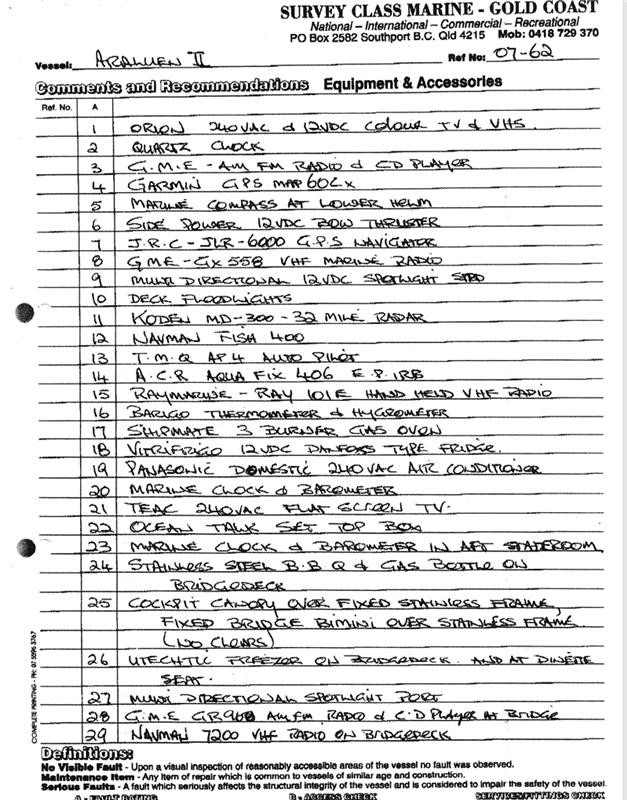 SURVEY CLASS MARINE - GOLD COAST
National – International – Commercial – Recreational
PO Box 2582 Southport B.C. Qld 4215 Mob: 0418 729 370
Vessel: ARALUEN II Ref No: 07-62
Comments and Recommendations Equipment & Accessories
Ref. No. A
1 ORION 240VAC & 12VDC COLOUR TV & VHS.
2 QUARTZ CLOCK
3 G.M.E - AM FM RADIO & CD PLAYER
4 GARMIN GPS MAP 60Cx
5 MARINE COMPASS AT LOWER HELM
6 SIDE POWER 12VDC BOW THRUSTER
7 J.R.C - JLR-6000 G.P.S NAVIGATOR
8 GME - GX 558 VHF MARINE RADIO
9 MULTI DIRECTIONAL 12VDC SPOTLIGHT STBD
10 DECK FLOODLIGHTS
11 KODEN MD-300 - 32 MILE RADAR
12 NAVMAN FISH 400
13 T.M.Q AP4 AUTO PILOT
14 A.C.R AQUA FIX 406 E.P.IRB
15 RAYMARINE - RAY 101E HAND HELD VHF RADIO
16 BARIGO THERMOMETER & HYGROMETER
17 SHIPMATE 3 BURNER GAS OVEN
18 VITRIFRIGO 12VDC DANFOSS TYPE FRIDGE.
19 PANASONIC DOMESTIC 240VAC AIR CONDITIONER
20 MARINE CLOCK & BAROMETER
21 TEAC 240VAC FLAT SCREEN TV.
22 OCEAN TALK SET TOP BOX
23 MARINE CLOCK & BAROMETER IN AFT STATEROOM
24 STAINLESS STEEL B.B.Q & GAS BOTTLE ON
BRIDGEDECK
25 COCKPIT CANOPY OVER FIXED STAINLESS FRAME,
FIXED BRIDGE BIMINI OVER STAINLESS FRAME
(NO CLEARS)
26 UTECHTIC FREEZOR ON BRIDGEDECK. AND AT DINETTE
SEAT.
27 MULTI DIRECTIONAL SPOTLIGHT PORT
28 G.M.E GR968 AM FM RADIO & C.D PLAYER AT BRIDGE
29 NAVMAN 7200 VHF RADIO ON BRIDGEDECK
COMPLETE PRINTING - PH: 07 5596 3767
Definitions:
No Visible Fault - Upon a visual inspection of reasonably accessible areas of the vessel no fault was observed.
Maintenance Item - Any item of repair which is common to vessels of similar age and construction.
Serious Faults - A fault which seriously affects the structural integrity of the vessel and is considered to impair the safety of the vessel.
A - FAULT RATING B - ACCESS CHECK SERVICES/FITTINGS CHECK